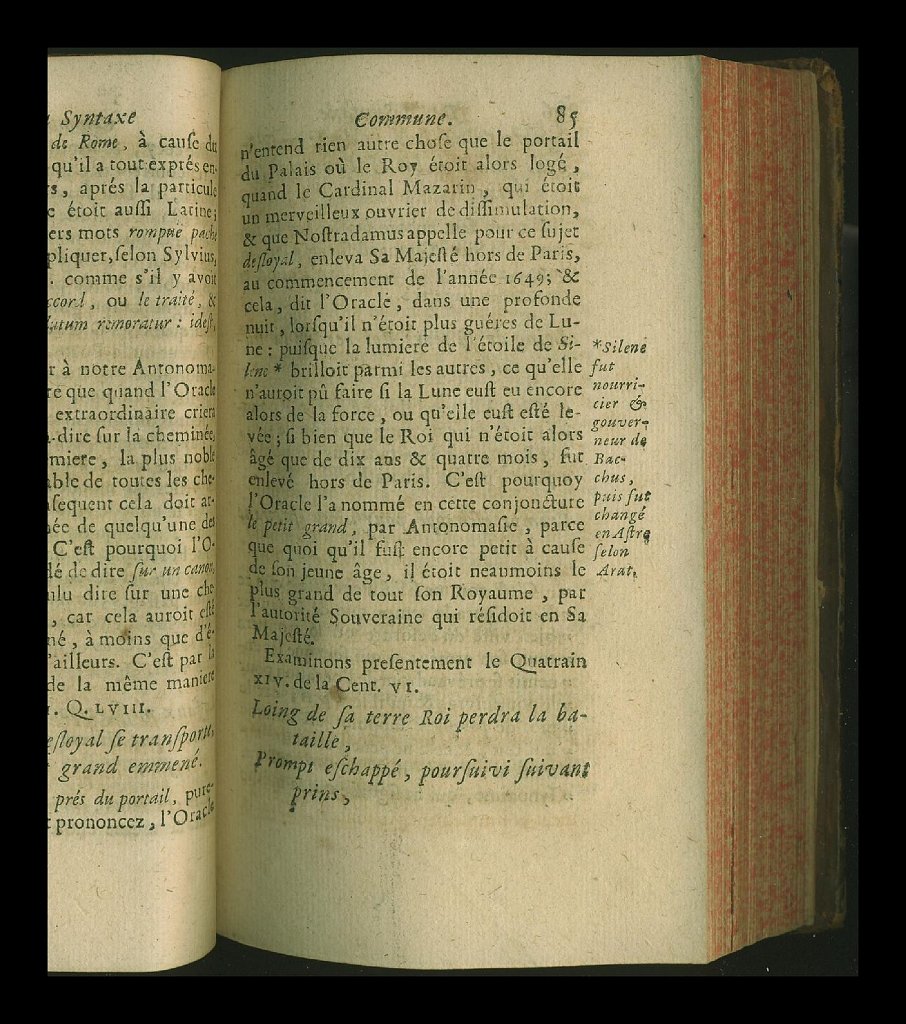 Syntaxe
de Rome, à cauſe du
qu'il a tout exprés en-
s, aprés la particule
c étoit auſſi Latine;
ers mots rompuë pache
pliquer, ſelon Sylvius,
. comme s'il y avoit
ccord, ou le traité, &
latum remoratur : ideſt,
r à notre Antonoma-
re que quand l'Oracle
extraordinaire criera
-dire ſur la cheminée,
miere, la plus noble
able de toutes les che-
ſequent cela doit ar-
ée de quelqu'une des
C'eſt pourquoi l'O-
lé de dire ſur un canon,
ulu dire ſur une che-
, car cela auroit eſté
né, à moins que d'ê-
'ailleurs. C'eſt par la
de la même maniere
. Q. LVIII.
eſloyal ſe tranſporte,
grand emmené.
prés du portail, pure-
t prononcez, l'Oracle
Commune. 85
n'entend rien autre choſe que le portail
du Palais où le Roy étoit alors logé,
quand le Cardinal Mazarin, qui étoit
un merveilleux ouvrier de diſſimulation,
& que Noſtradamus appelle pour ce ſujet
deſloyal, enleva Sa Majeſté hors de Paris,
au commencement de l'année 1649; &
cela, dit l'Oracle, dans une profonde
nuit, lorſqu'il n'étoit plus guéres de Lu-
ne : puiſque la lumiere de l'étoile de Si-
lene * brilloit parmi les autres, ce qu'elle
n'auroit pû faire ſi la Lune euſt eu encore
alors de la force, ou qu'elle euſt eſté le-
vée; ſi bien que le Roi qui n'étoit alors
âgé que de dix ans & quatre mois, fut
enlevé hors de Paris. C'eſt pourquoy
l'Oracle l'a nommé en cette conjoncture
le petit grand, par Antonomaſie, parce
que quoi qu'il fuſt encore petit à cauſe
de ſon jeune âge, il étoit neanmoins le
plus grand de tout ſon Royaume, par
l'autorité Souveraine qui réſidoit en Sa
Majeſté.
Examinons preſentement le Quatrain
XIV. de la Cent. VI.
Loing de ſa terre Roi perdra la ba-
taille,
Prompt eſchappé, pourſuivi ſuivant
prins,
*Silene
fut
nourri-
cier &
gouver-
neur de
Bac-
chus,
puis fut
changé
en Aſtre
ſelon
Arat.